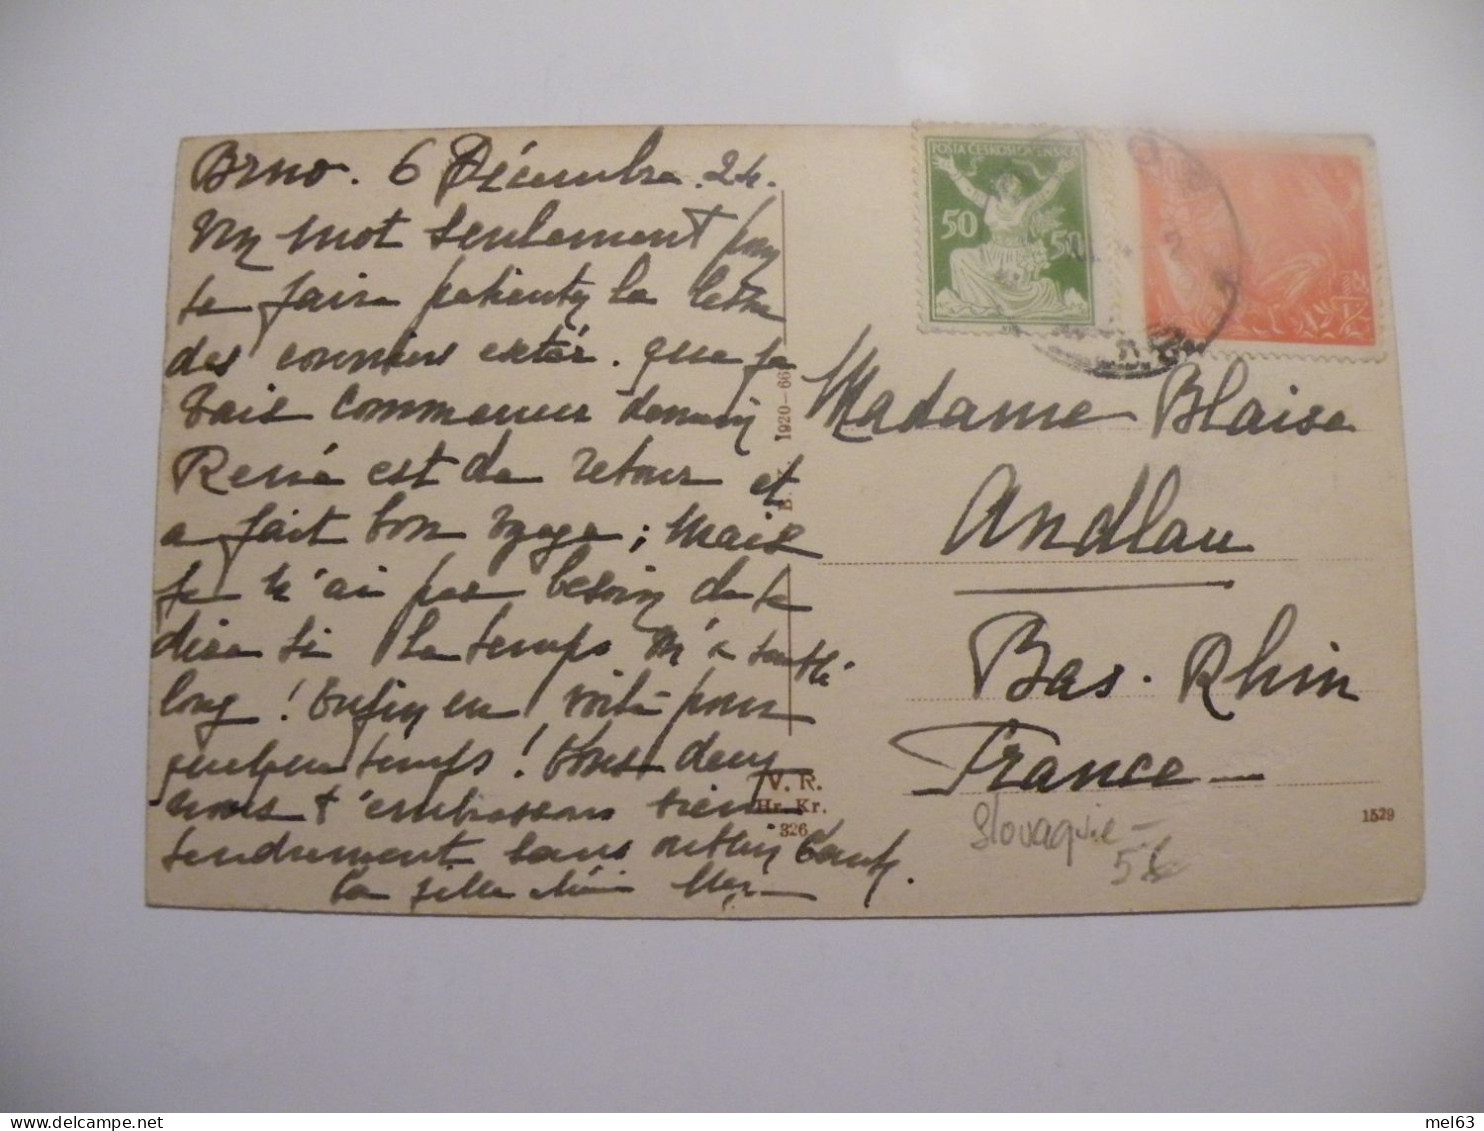 Brno. 6 Décembre. 24.
Un mot seulement pour
te faire patienter la lettre
des courriers extér. que je
vais commencer demain
René est de retour et
a fait bon voyage ; mais
je n'ai pas besoin de te
dire si le temps m'a semblé
long ! Enfin en voilà pour
quelque temps ! Tous deux
nous t'embrassons bien
tendrement sans oublier Tante.
Ta fille chérie
POŠTA ČESKOSLOVENSKÁ
50
50
Madame Blaise
Andlau
Bas-Rhin
France
1920-66
V. R.
Hr. Kr.
326
1529
Slovaquie
mel63